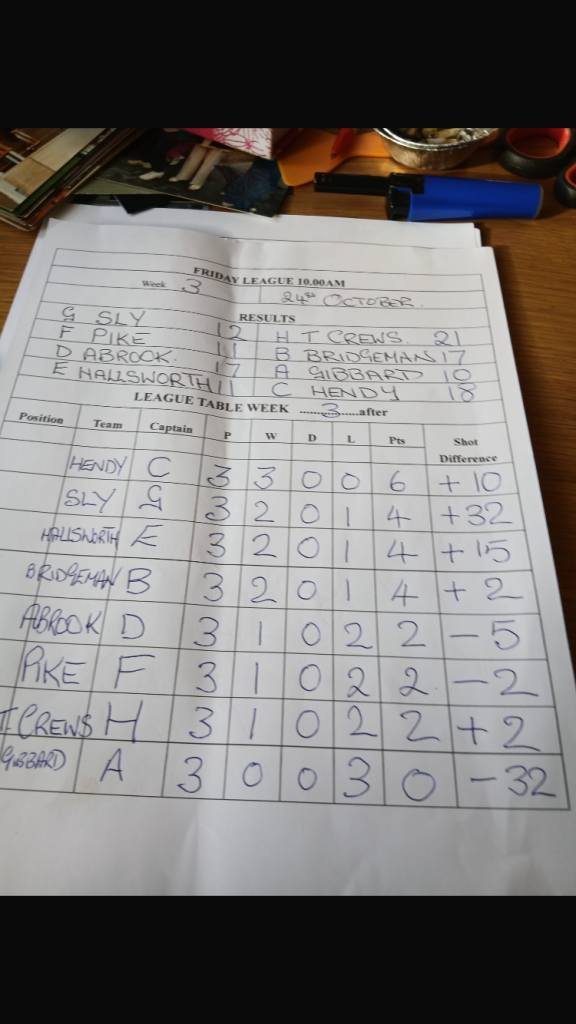 FRIDAY LEAGUE 10.00AM
Week 3 24th OCTOBER.
RESULTS
G SLY 12 H T CREWS. 21
F PIKE 11 B BRIDGEMAN 17
D ABROOK. 17 A GIBBARD 10
E HALLSWORTH 11 C HENDY 18
LEAGUE TABLE WEEK ......3.....after
Position Team Captain P W D L Pts Shot Difference
HENDY C 3 3 0 0 6 +10
SLY G 3 2 0 1 4 +32
HALLSWORTH E 3 2 0 1 4 +15
BRIDGEMAN B 3 2 0 1 4 +2
ABROOK D 3 1 0 2 2 -5
PIKE F 3 1 0 2 2. -2
T.CREWS H 3 1 0 2 2 +2
GIBBARD A 3 0 0 3 0 -32